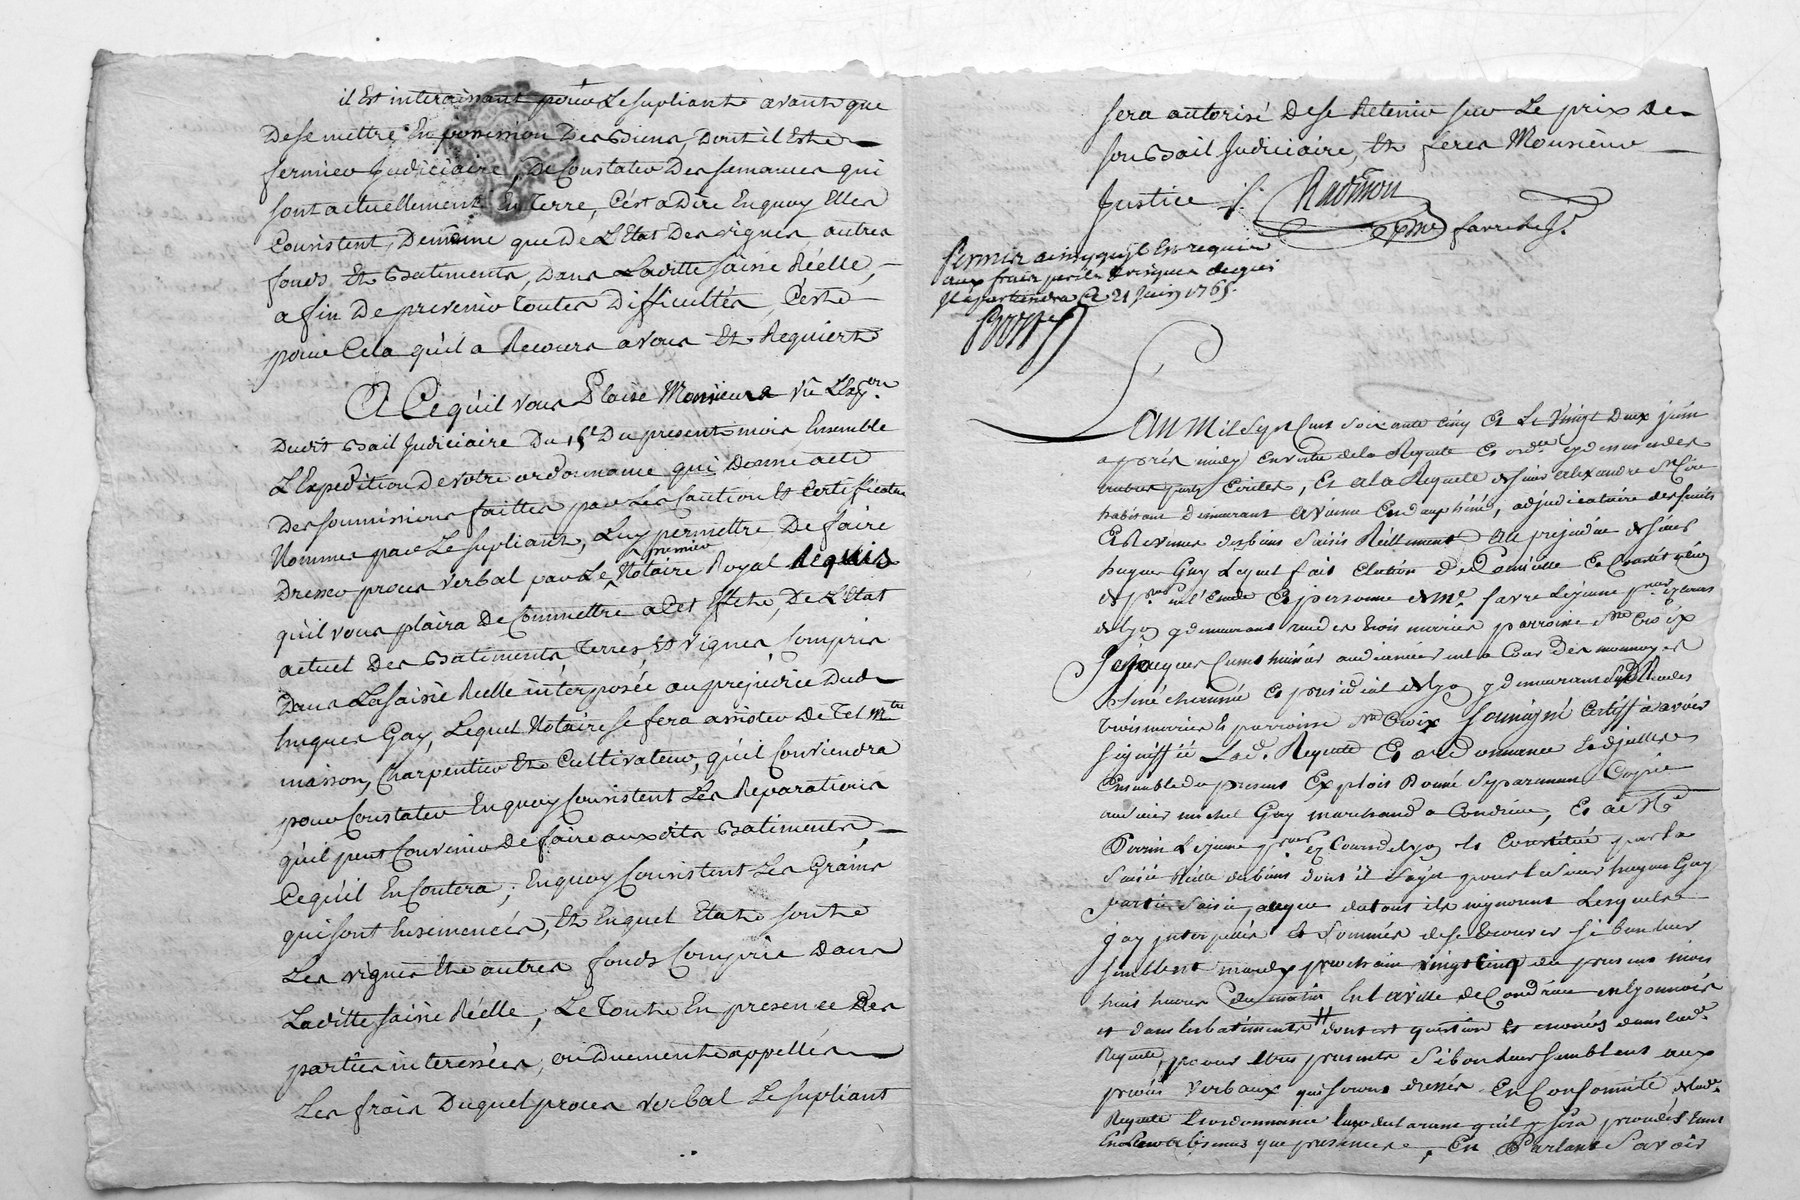 il Est interaissant pour Le supliant avant que
De se mettre En possession Des Biens, Dont il Est
fermier Judiciaire, De Constater Des semances qui
sont actuellement En Terre, C'est a Dire En quoy Elles
Consistent, De même que De L'Etat Des vignes, autres
fonds Et Batiments, Dans Laditte saisie Réelle,
afin De prevenir toutes Difficultés, C'est
pour Cela qu'il a Recours a vous Et Requiert
A Ce qu'il vous Plaise Monsieur vû L'Exp.on
Dudit Bail Judiciaire Du 15e Du present mois Ensemble
L'Expedition De votre ordonnance qui Donne acte
Des soumissions faittes par Les Caution Et Certificateur
Nommés par Le supliant, Luy permettre De faire
Dresser procès verbal par Le premier Notaire Royal Requis
qu'il vous plaira De Commettre a Cet Effet, De L'Etat
actuel Des Batiments Terres, Et vignes Compris
Dans La saisie Réelle interposée au préjudice Dud.
hugues Gay, Lequel Notaire se fera assister De Tel Mtre
masson, Charpentier Et Cultivateur, qu'il Conviendra
pour Constater En quoy Consistent Les Reparations
qu'il peut Convenir De faire aux dits Batiments
Ce qu'il En Coutera; En quoy Consistent Les Grains
qui sont Ensemencés, Et En quel Etat sont
Les vignes Et autres fonds Compris Dans
Laditte saisie Réelle; Le Tout En presence Des
parties interessées, ou Duement appellés
Les frais Duquel procès verbal Le supliant
sera autorisé De se Retenir sur Le prix de
son Bail Judiciaire, Et ferés Monsieur
Justice
favre le J.
Permis ainsy qu'il Est requis
aux frais perils & risques de qui
il apartiendra Ce 21 Juin 1765.
L'an Mil Sept Cent Soixante Cinq Et Le Vingt Deux juin
après midy En vertu de la Requete Et ord.ce cy dessus
Et a la Requete de sieur alexandre
habitant Demeurant a vienne En dauphiné, adjudicataire des fruits
Et Revenus des biens saisis Réellement Au prejudice de sieur
hugues Gay Lequel fait Election De Domicille
En L'Etude Et personne de Me. favre Lejeune
de Lyon y demeurant rue des trois maries parroisse Ste Croix
Je jacques huissier audiencier en la Cour Des monnoyes
Sénéchaussée Et presidial de Lyon y demeurant rue des
trois maries parroisse Ste Croix Soussigné Certiffie avoir
signiffié Lad. Requete Et ordonnance
Ensemble du present Exploit Donné Separement Copie
au sieur michel Gay marchand a Condrieu, Et a Me
Perrin Lejeune Es Cours de Lyon Constitué par la
Saisie Réelle des biens dont il s'agit pour Le sieur hugues Gay
partie Saisie, a ce que du tout ils n'ignorent Lesquels
Gay interpellés Et Sommés de se trouver si bon leur
semble mardy prochain vingt Cinq du present mois
huit heures du matin En la ville de Condrieu en Lyonnois
et dans les batiments dont est question Et enoncés dans lad.
Requete, pour Etre presents si bon Leur semble aux
procès verbaux qui seront dressés En Conformité de lad.
Requete Et ordonnance Leur declarant qu'il y sera procedé tant
En Leur absence que presence, En Parlant Savoir